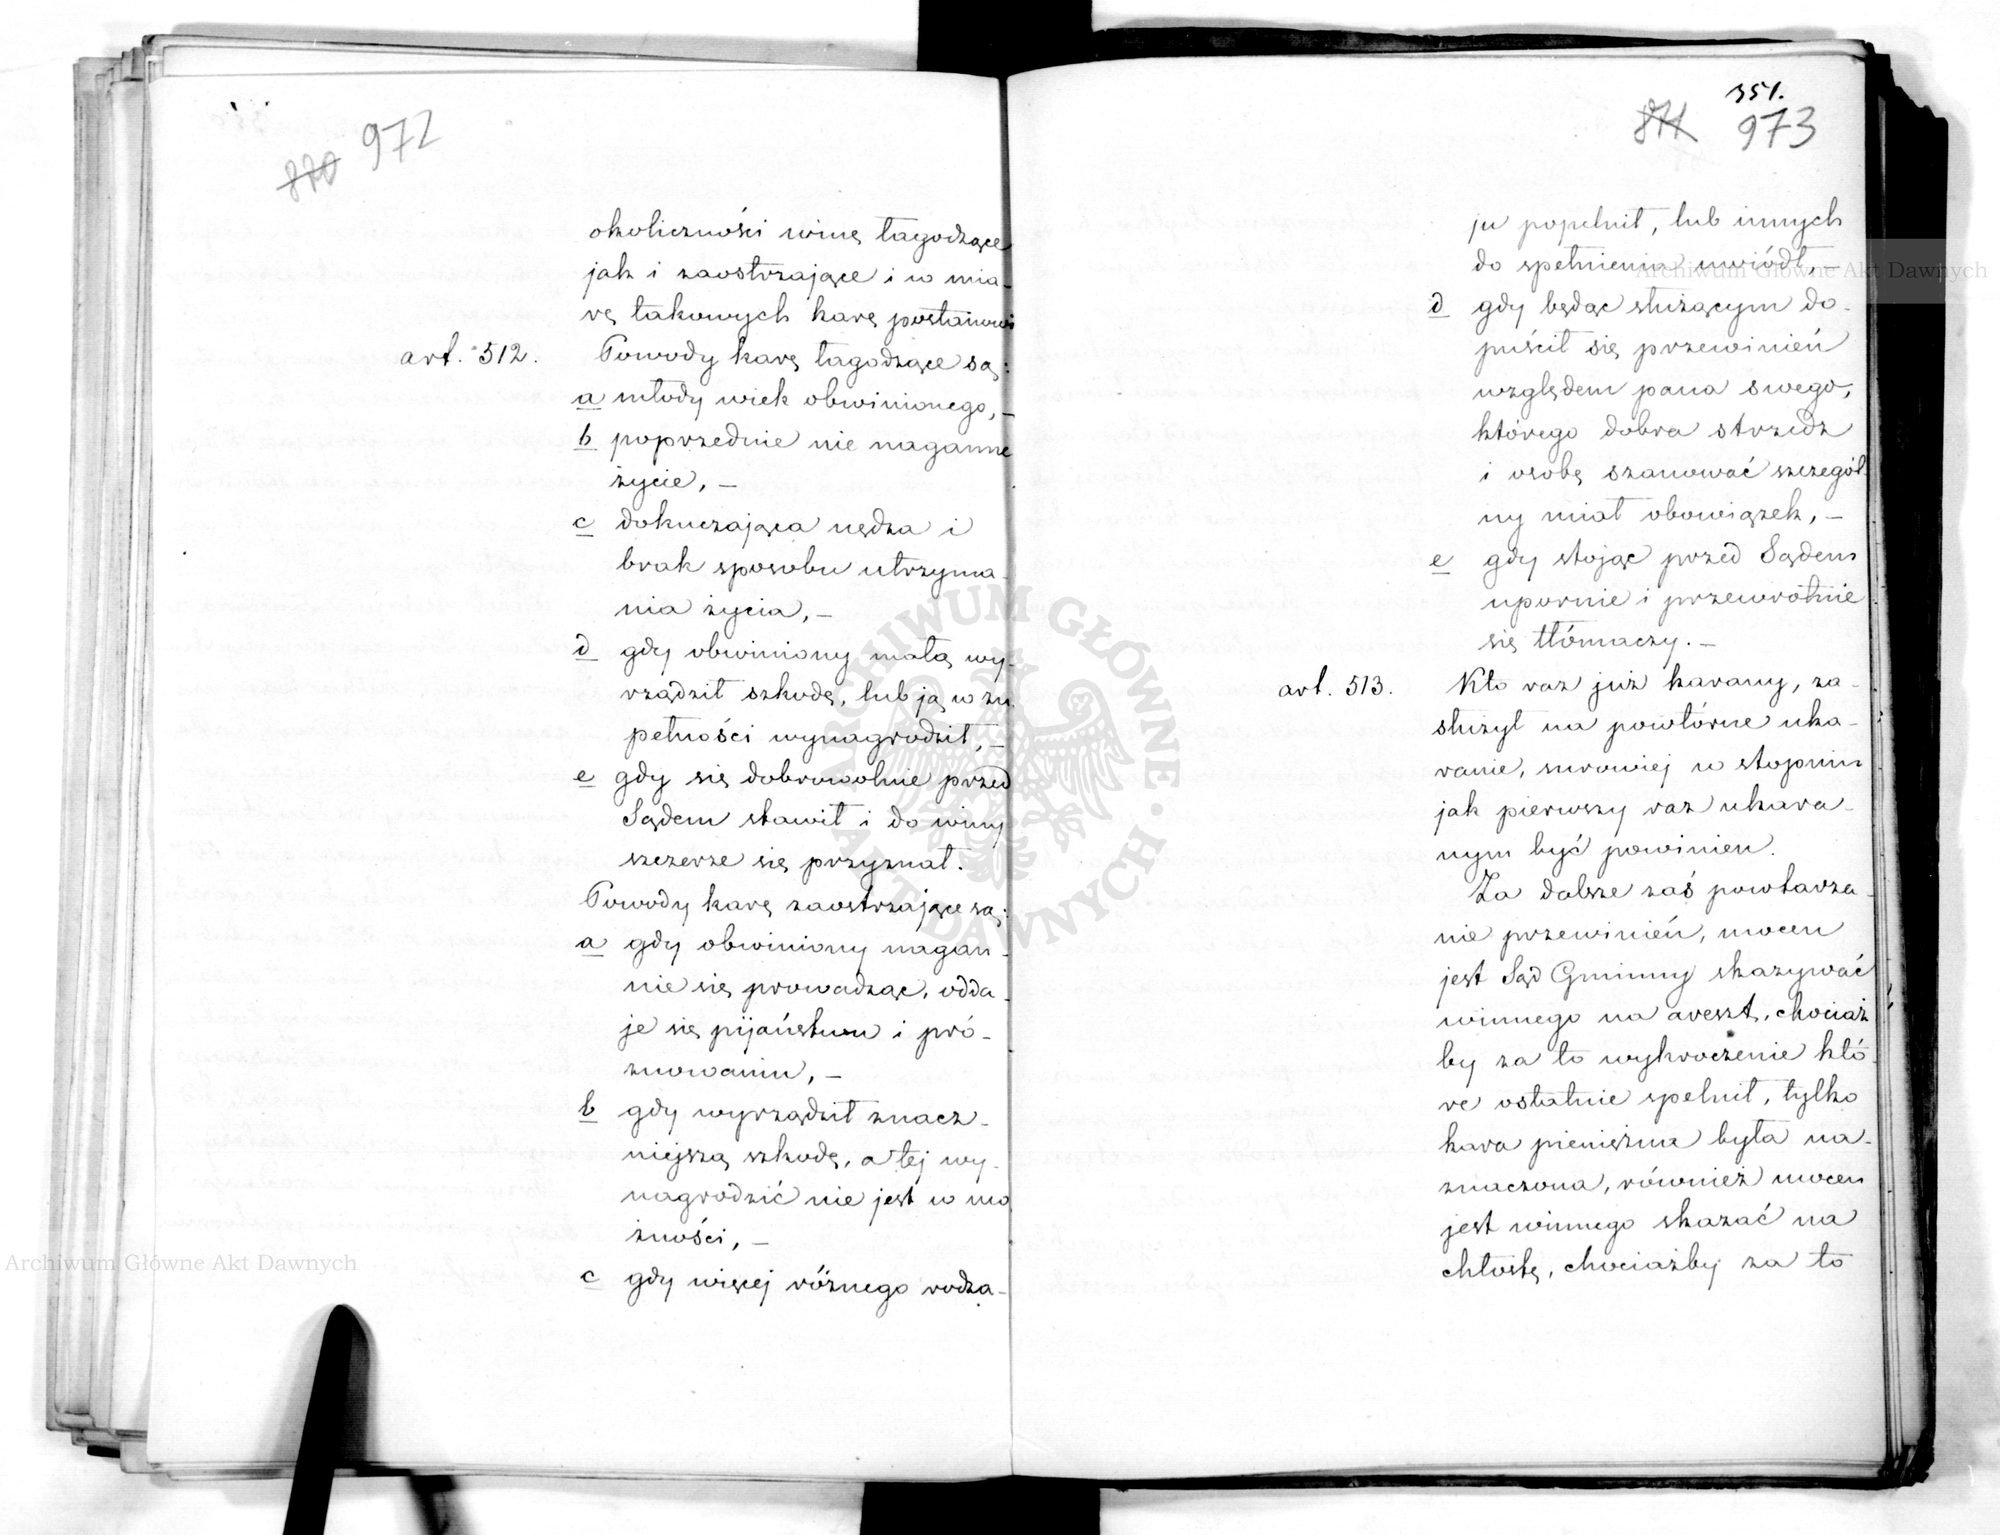 870 972
okoliczności winę łagodzące
jak i zaostrzające i w mia-
rę takowych karę postanowi
art. 512. Powody karę łagodzące są:
a młody wiek obwinionego, –
b poprzednie nie naganne
życie, –
c dokuczająca nędza i
brak sposobu utrzyma-
nia życia, –
d gdy obwiniony małą wy-
rządził szkodę, lub ją w zu
pełności wynagrodził, –
e gdy się dobrowolnie przed
Sądem stawił i do winy
szczerze się przyznał.
Powody karę zaostrzające są:
a gdy obwiniony nagan-
nie się prowadząc, odda-
je się pijaństwu i pró-
żnowaniu, –
b gdy wyrządził znacz-
niejszą szkodę, a tej wy-
nagrodzić nie jest w mo
żności, –
c gdy więcej różnego rodza-
351.
871 973
ju popełnił, lub innych
do spełnienia uwiódł, –
d gdy będąc służącym do-
puścił się przewinień
względem pana swego,
którego dobra strzedz
i osobę szanować szczegól-
ny miał obowiązek, –
e gdy stojąc przed Sądem
upornie i przewrotnie
się tłómaczy. –
art. 513. Kto raz już karany, za-
służył na powtórne uka-
ranie, surowiej w stopniu
jak pierwszy raz ukara-
nym być powinien.
Za dalsze zaś powtarza-
nie przewinień, mocen
jest Sąd Gminny skazywać
winnego na areszt, chociaż
by za to wykroczenie któ-
re ostatnie spełnił, tylko
kara pieniężna była na-
znaczona, również mocen
jest winnego skazać na
chłostę, chociażby za to
Archiwum Główne Akt Dawnych
Archiwum Główne Akt Dawnych
ARCHIWUM GŁÓWNE AKT DAWNYCH